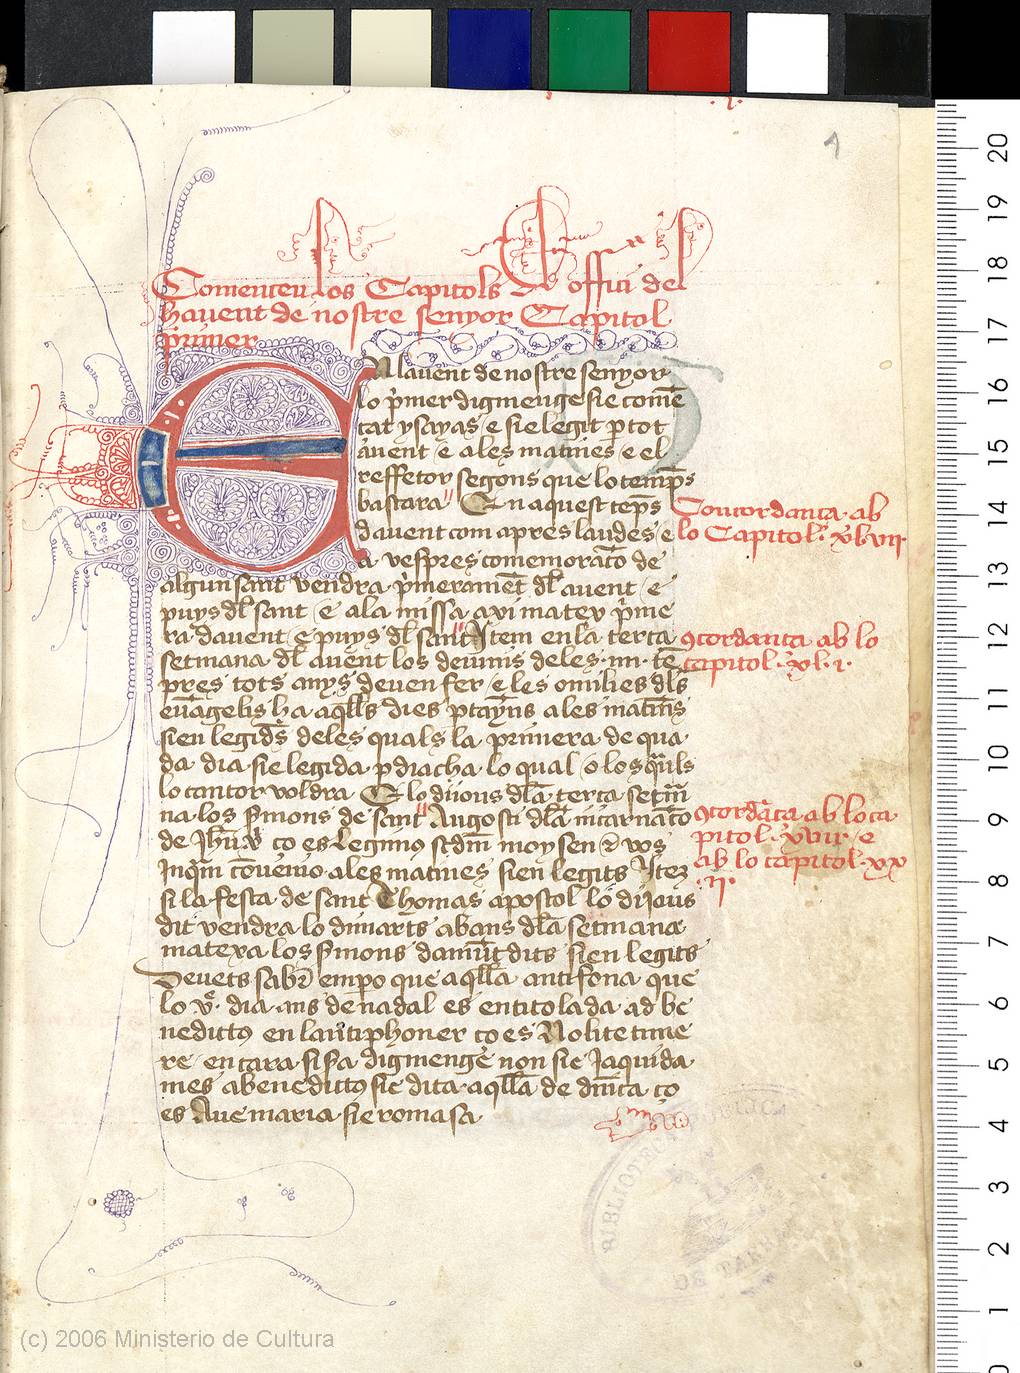 1
Comencen los Capitols De offici del
havent de nostre senyor Capitol
p̃rimer
EN lavent de nostre senyor
lo p̃mer digmenge sie comē
tat ysayas e sie legit p tot
avent e a les matines e el
reffetor segons que lo temps
bastara En aquest tēps
davent com apres laudes e
a vespres comemoracō de
algun sant vendra p̃merament dl̃ avent e
puys dl̃ sant e a la missa axi matex p̃me
ra davent e puys dl̃ sant Item en la terça
setmana dl̃ avent los deiunis deles iiii tē
pres tots anys deven fer e les omilies dl̃s
evāgelis ha aq̃lls dies ptayēns a les matins
sien legids deles quals la primera de qua
da dia sie legida p diacha lo qual o los quals
lo cantor voldra E lo dijous dl̃a terça setm̄
na los s̃mons de sant Augosti dl̃a incarnatō
de Jhũ xp̃ ço es Legimus sc̄dm moysen ⁊ vos
Inq̃m cōvenio a les matines sien legits Itez
si la festa de sant Thomas apostol lo dijous
dit vendra lo dimarts abans dl̃a setmana
matexa los s̃mons damūt dits sien legits
Devets sabr̄ empo que aq̃lla antifona que
lo vͤ dia ans de nadal es entitolada ad be
nedictus en lantiphoner ço es Nolite time
re encara si s̃a digmenge non sie Jaquida
mes a benedictus sie dita aq̃lla de dn̄ica ço
es Ave maria sie romasa
Concordança ab
lo Capitol xlvii
ꝯcordança ab lo
capitol xl i
ꝯcordāça ab lo ca
pitol xviii e
ab lo capitol xx
ii
(c) 2006 Ministerio de Cultura
20
19
18
17
16
15
14
13
12
11
10
9
8
7
6
5
4
3
2
1
0